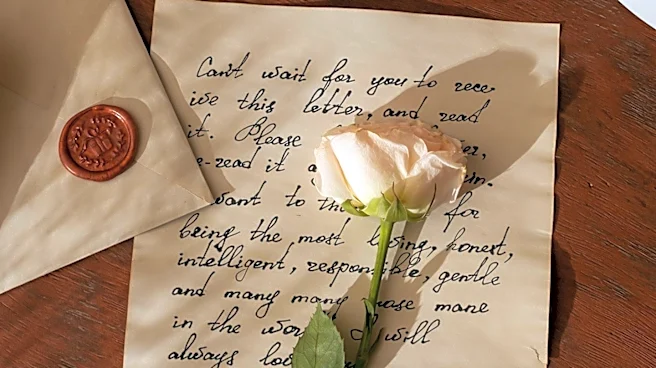 Can't wait for you to rece
ive this letter, and read
it. Please
re-read it
want to for
being the most loving, honest,
intelligent, responsible, gentle
and many many mane
in the will
always